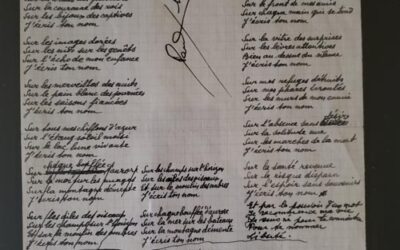 Sur la couronne des rois
Sur les bijoux des captives
J'écris ton nom
Sur les images dorées
Sur les nids sur les genêts
Sur l'écho de mon enfance
J'écris ton nom
Sur les merveilles des nuits
Sur le pain blanc des journées
Sur les saisons fiancées
J'écris ton nom
Sur tous mes chiffons d'azur
Sur l'étang soleil moisi
Sur le lac lune vivante
J'écris ton nom
Sur
Sur la mer sur les
Sur la montagne
J'écris ton nom
Sur les ailes des oiseaux
Sur les champs sur l'horizon
Et sur le moulin des ombres
J'écris ton nom
Sur les champs sur l'horizon
Sur les ailes des oiseaux
Et sur le moulin des ombres
J'écris ton nom
Sur chaque bouffée d'aurore
Sur la mer sur les bateaux
Sur la montagne démente
J'écris ton nom
Sur le front de mes amis
Sur chaque main qui se tend
J'écris ton nom
Sur la vitre des surprises
Sur les lèvres attentives
Bien au dessus du silence
J'écris ton nom
Sur mes refuges détruits
Sur mes phares écroulés
Sur les murs de mon ennui
J'écris ton nom
Sur l'absence sans désirs
Sur la solitude nue
Sur les marches de la mort
J'écris ton nom
Sur la santé revenue
Sur le risque disparu
Sur l'espoir sans souvenirs
J'écris ton nom
Et par le pouvoir d'un mot
Je recommence ma vie
Je suis né pour te connaître
Pour te nommer
Liberté.